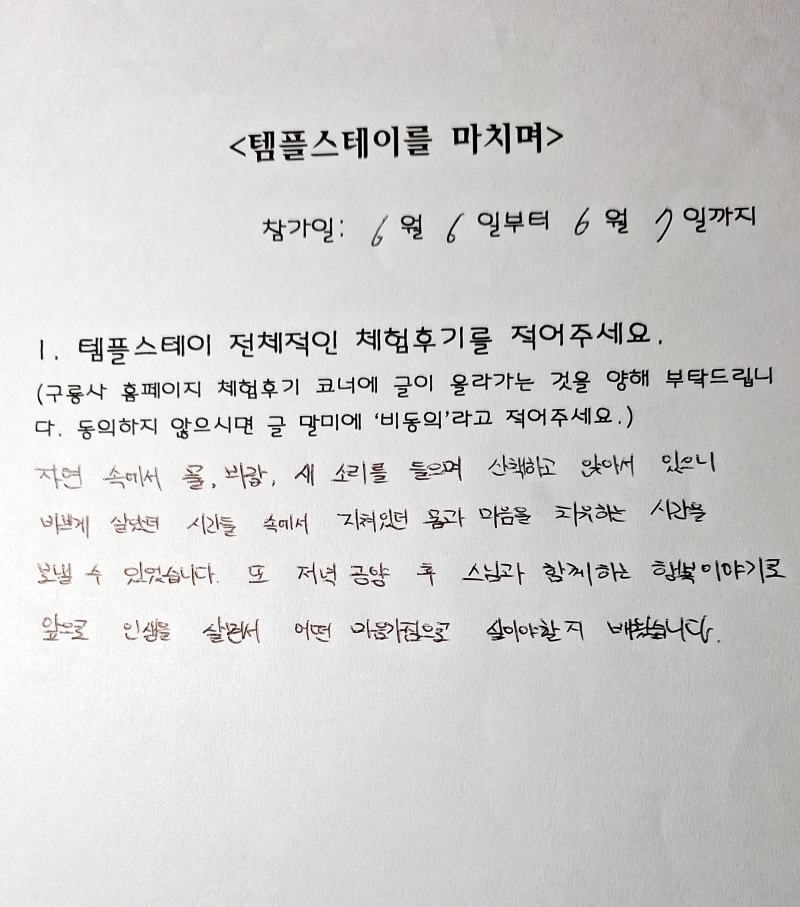 <템플스테이를 마치며>
참가일: 6 월 6 일부터 6 월 7 일까지
1. 템플스테이 전체적인 체험후기를 적어주세요.
(구룡사 홈페이지 체험후기 코너에 글이 올라가는 것을 양해 부탁드립니
다. 동의하지 않으시면 글 말미에 '비동의'라고 적어주세요.)
자연 속에서 물, 바람, 새 소리를 들으며 산책하고 앉아서 있으니
바쁘게 살았던 시간들 속에서 지쳐있던 몸과 마음을 치유하는 시간을
보낼 수 있었습니다. 또 저녁 공양 후 스님과 함께하는 행복이야기로
앞으로 인생을 살면서 어떤 마음가짐으로 살아야할지 배웠습니다.